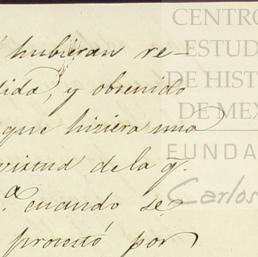 hubieran re-
dida, y obtenido
que hiziera una
virtud de la q.
.ª cuando se
protestó por
CENTRO
ESTUD
DE HIST
DE MEX
FUNDA
Carlos